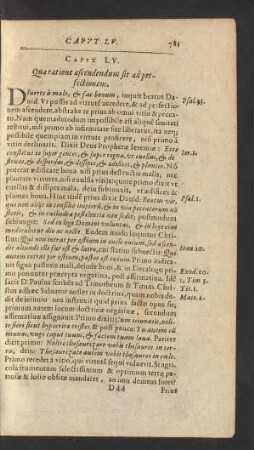 CAPVT LV. 785
CAPVT LV.
Qua ratione ascendendum sit ad perfectionem.
Diuerte à malo, & fac bonum, inquit beatus Dauid.
Vt possis ad virtutē accedere, & ad perfectionem
ascendere, abstrahe te prius ab omni vitio & peccato.
Nam quemadmodum impossibile est aliquē
fieri, nisi primo ab infirmitate
possibile quempiam in virtute proficere, nisi primo à
vitio declinauerit. Dixit Deus Prophetæ Ieremiæ: Ecce
constitui te super gentes, & super regna, vt euellas, & destruas,
& disperdas, & dissipes, & ædifices, & plantes. Nō
poterat ædificare bona nisi prius destrueret mala, nec
plantare virtutes, nisi
euellas & dissipes mala, deinde
bona. Hinc prius dixit Dauid: Beatus vir,
qui non abijt in consilio impiorū, & in via peccatorum nō
stetit, & in cathedra pestilentiæ non sedit, postmodum
subiungit: Sed in lege Domini voluntas, & in lege eius
meditabitur die ac nocte. Eodem modo loquutus Christus:
Qui non intrat per ostium in ouile ouium, sed ascendit
aliunde ille fur est & latro,
autem intrat per ostium, pastor est ouium. Primo indicat
signa pastoris mali, deinde boni, & in Decalogo primo
ponuntur præcepta negatiua, post affirmatiua.
D. Paulus scribēs ad Timotheum & Titum
Saluator noster in doctrina, quam nobis dedit
de virtute nos instruxit quid prius factu opus sit,
primum loco ponens doctrinā negatiuā, secundum
affirmatiuæ assignauit. Primo dixit: Cum ieiunatis, nolite
fieri sicut hypocritæ tristes. & post pauca: Tu autem cū
ieiunas, vnge caput tuum, & faciem tuam laua. Pariter
dixit primo: Nolite thesaurizare vobis thesauros in terra,
dein: Thesaurizate autem vobis thesauros in cælo.
Primo recedit à vitio, qui virtutē sequi voluerit. Si
& optimum terræ
& lolio obsitæ mandaret, an non demens foret?
Ddd Prius
Psal. 36.
Iere. 1.
Psal. 1.
Ioan. 10.
Exod. 20.
1. Tim. 3.
Tit. 1.
Matt. 6.